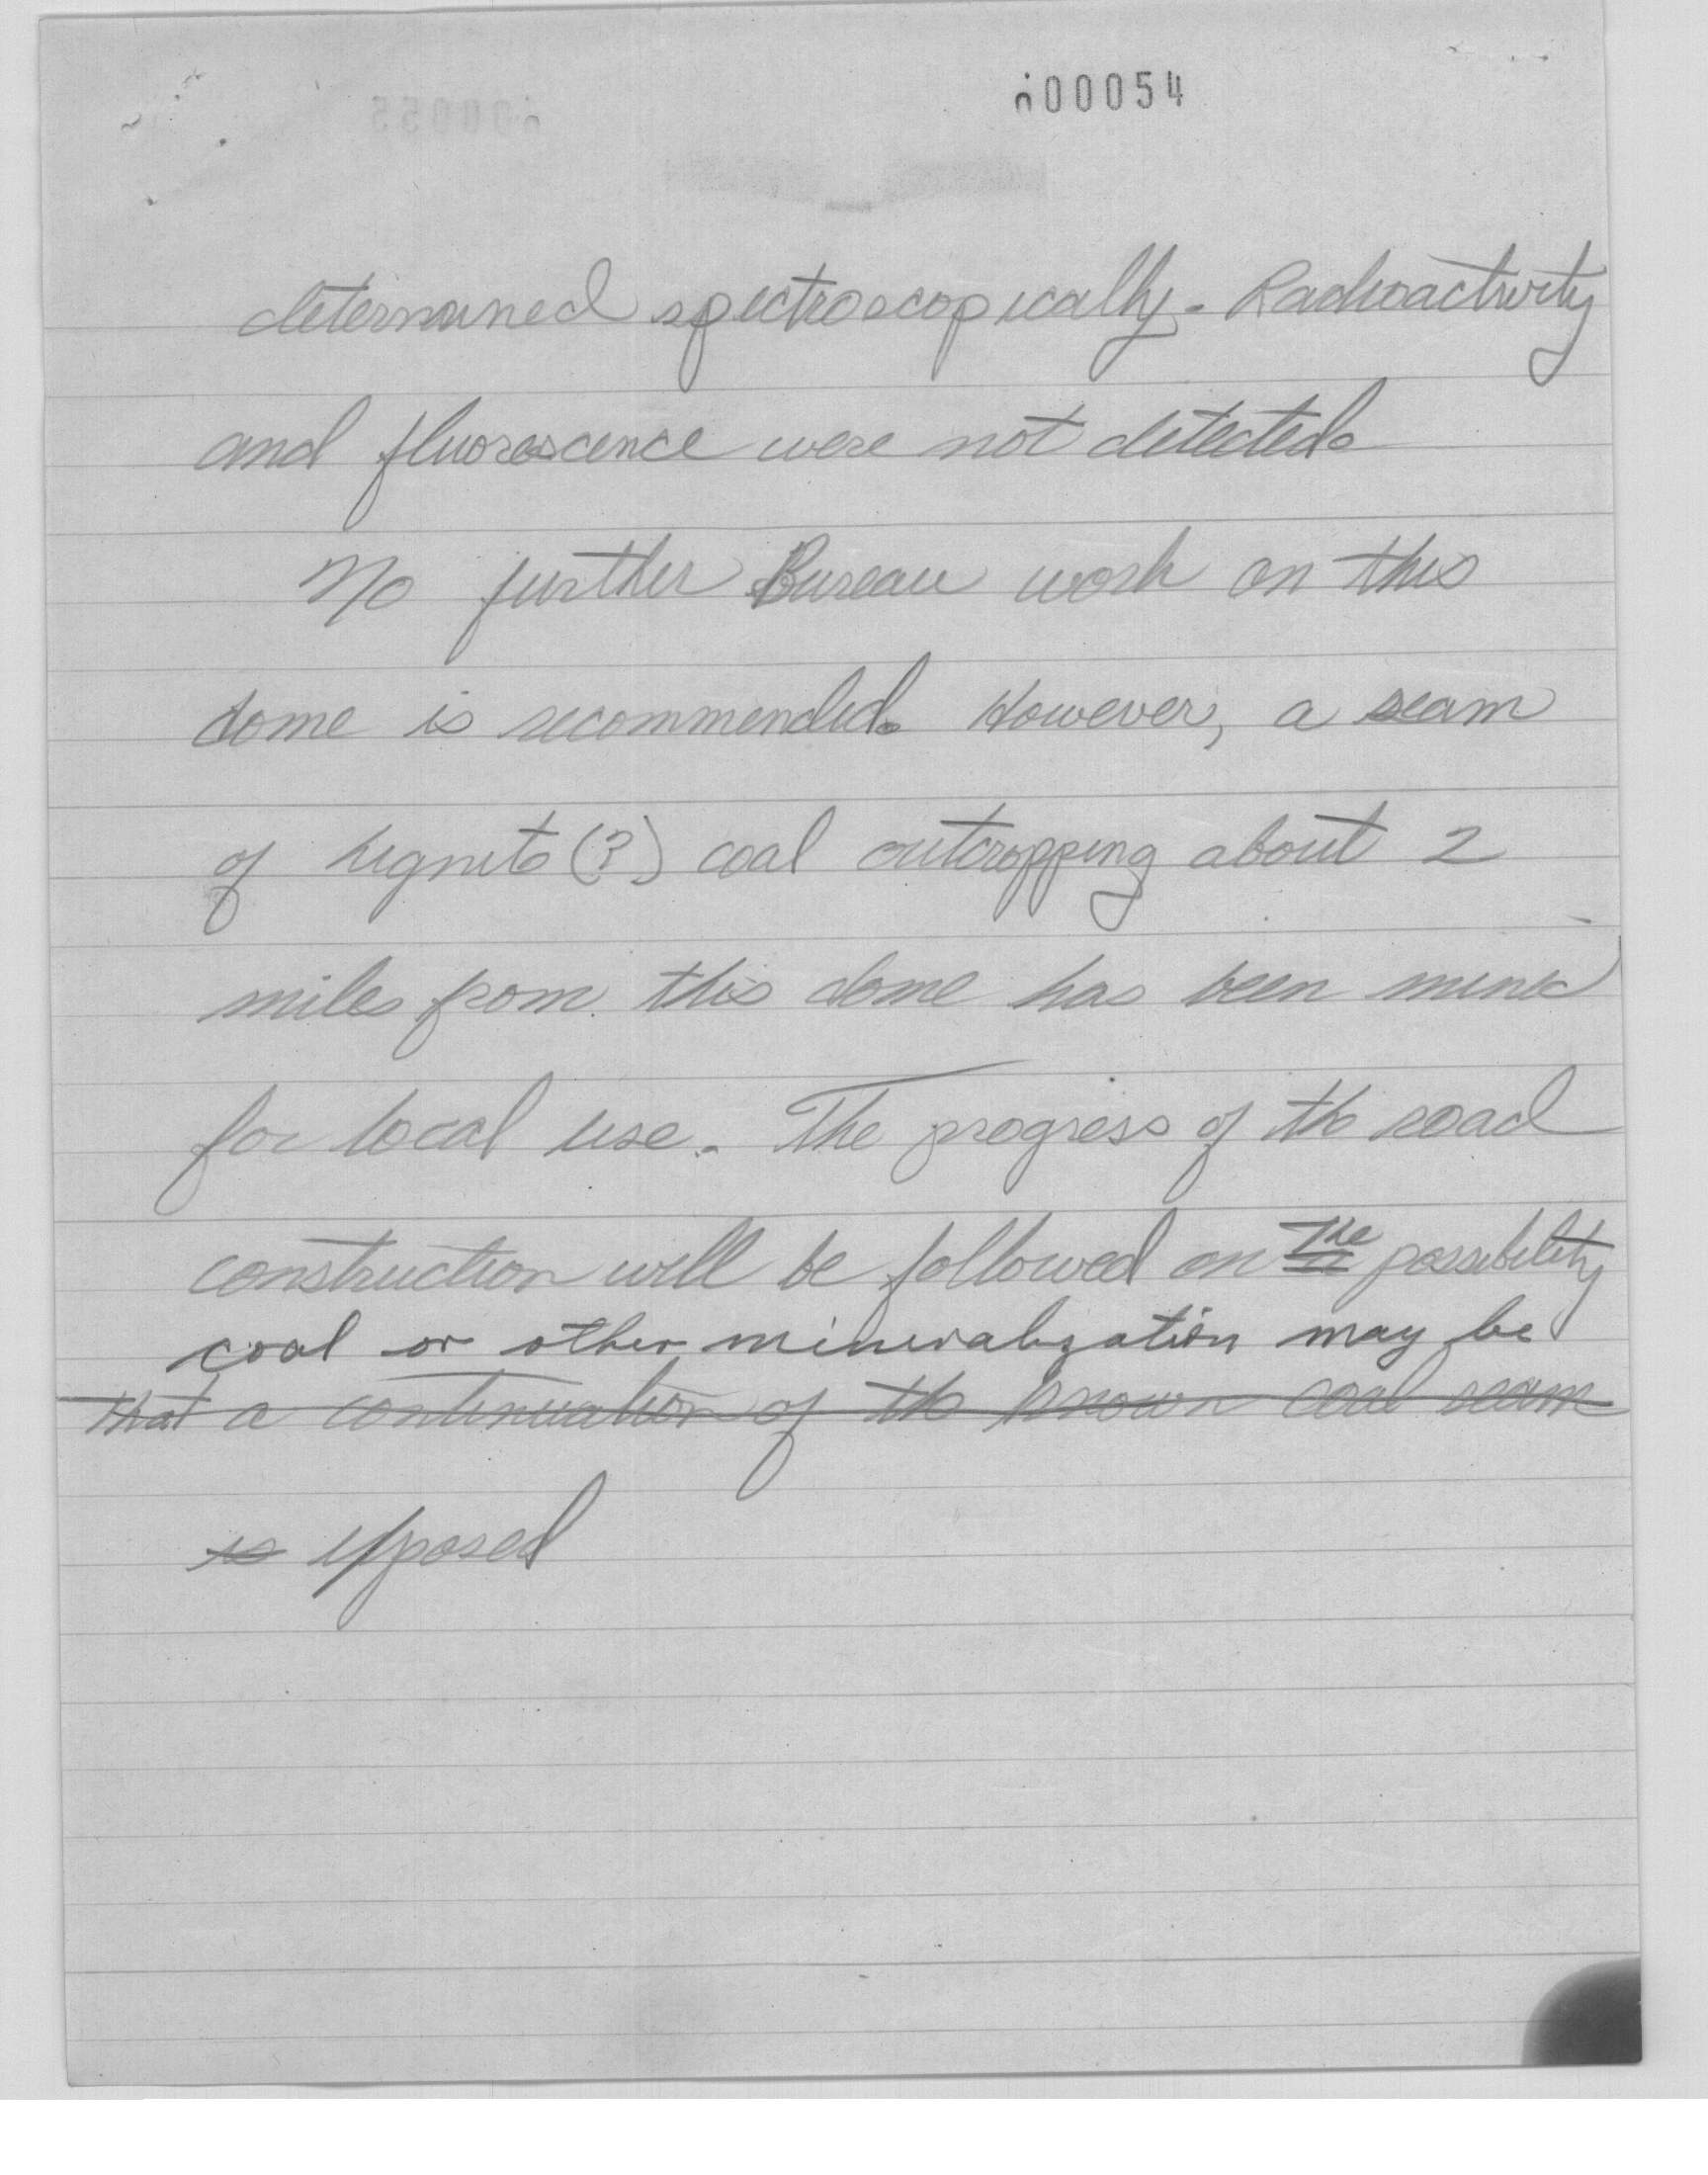 000054
determined spectroscopically. Radioactivity
and fluorescence were not detected.
No further Bureau work on this
dome is recommended. However, a seam
of lignite (?) coal outcropping about 2
miles from this dome has been mined
for local use. The progress of the road
construction will be followed on the possibility
coal or other mineralization may be
that a continuation of the known coal seam
is exposed